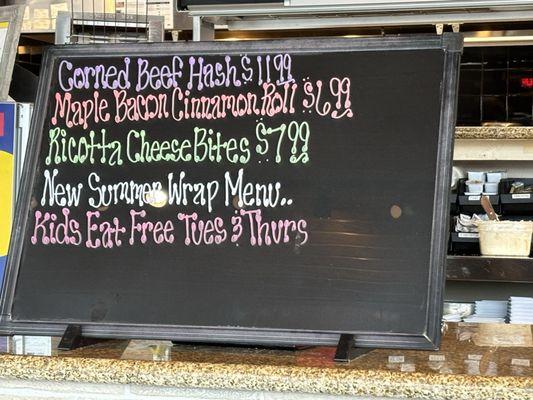 Corned Beef Hash $11.99
Maple Bacon Cinnamon Roll $6.99
Ricotta Cheese Bites $7.99
New Summer Wrap Menu..
Kids Eat Free Tues & Thurs